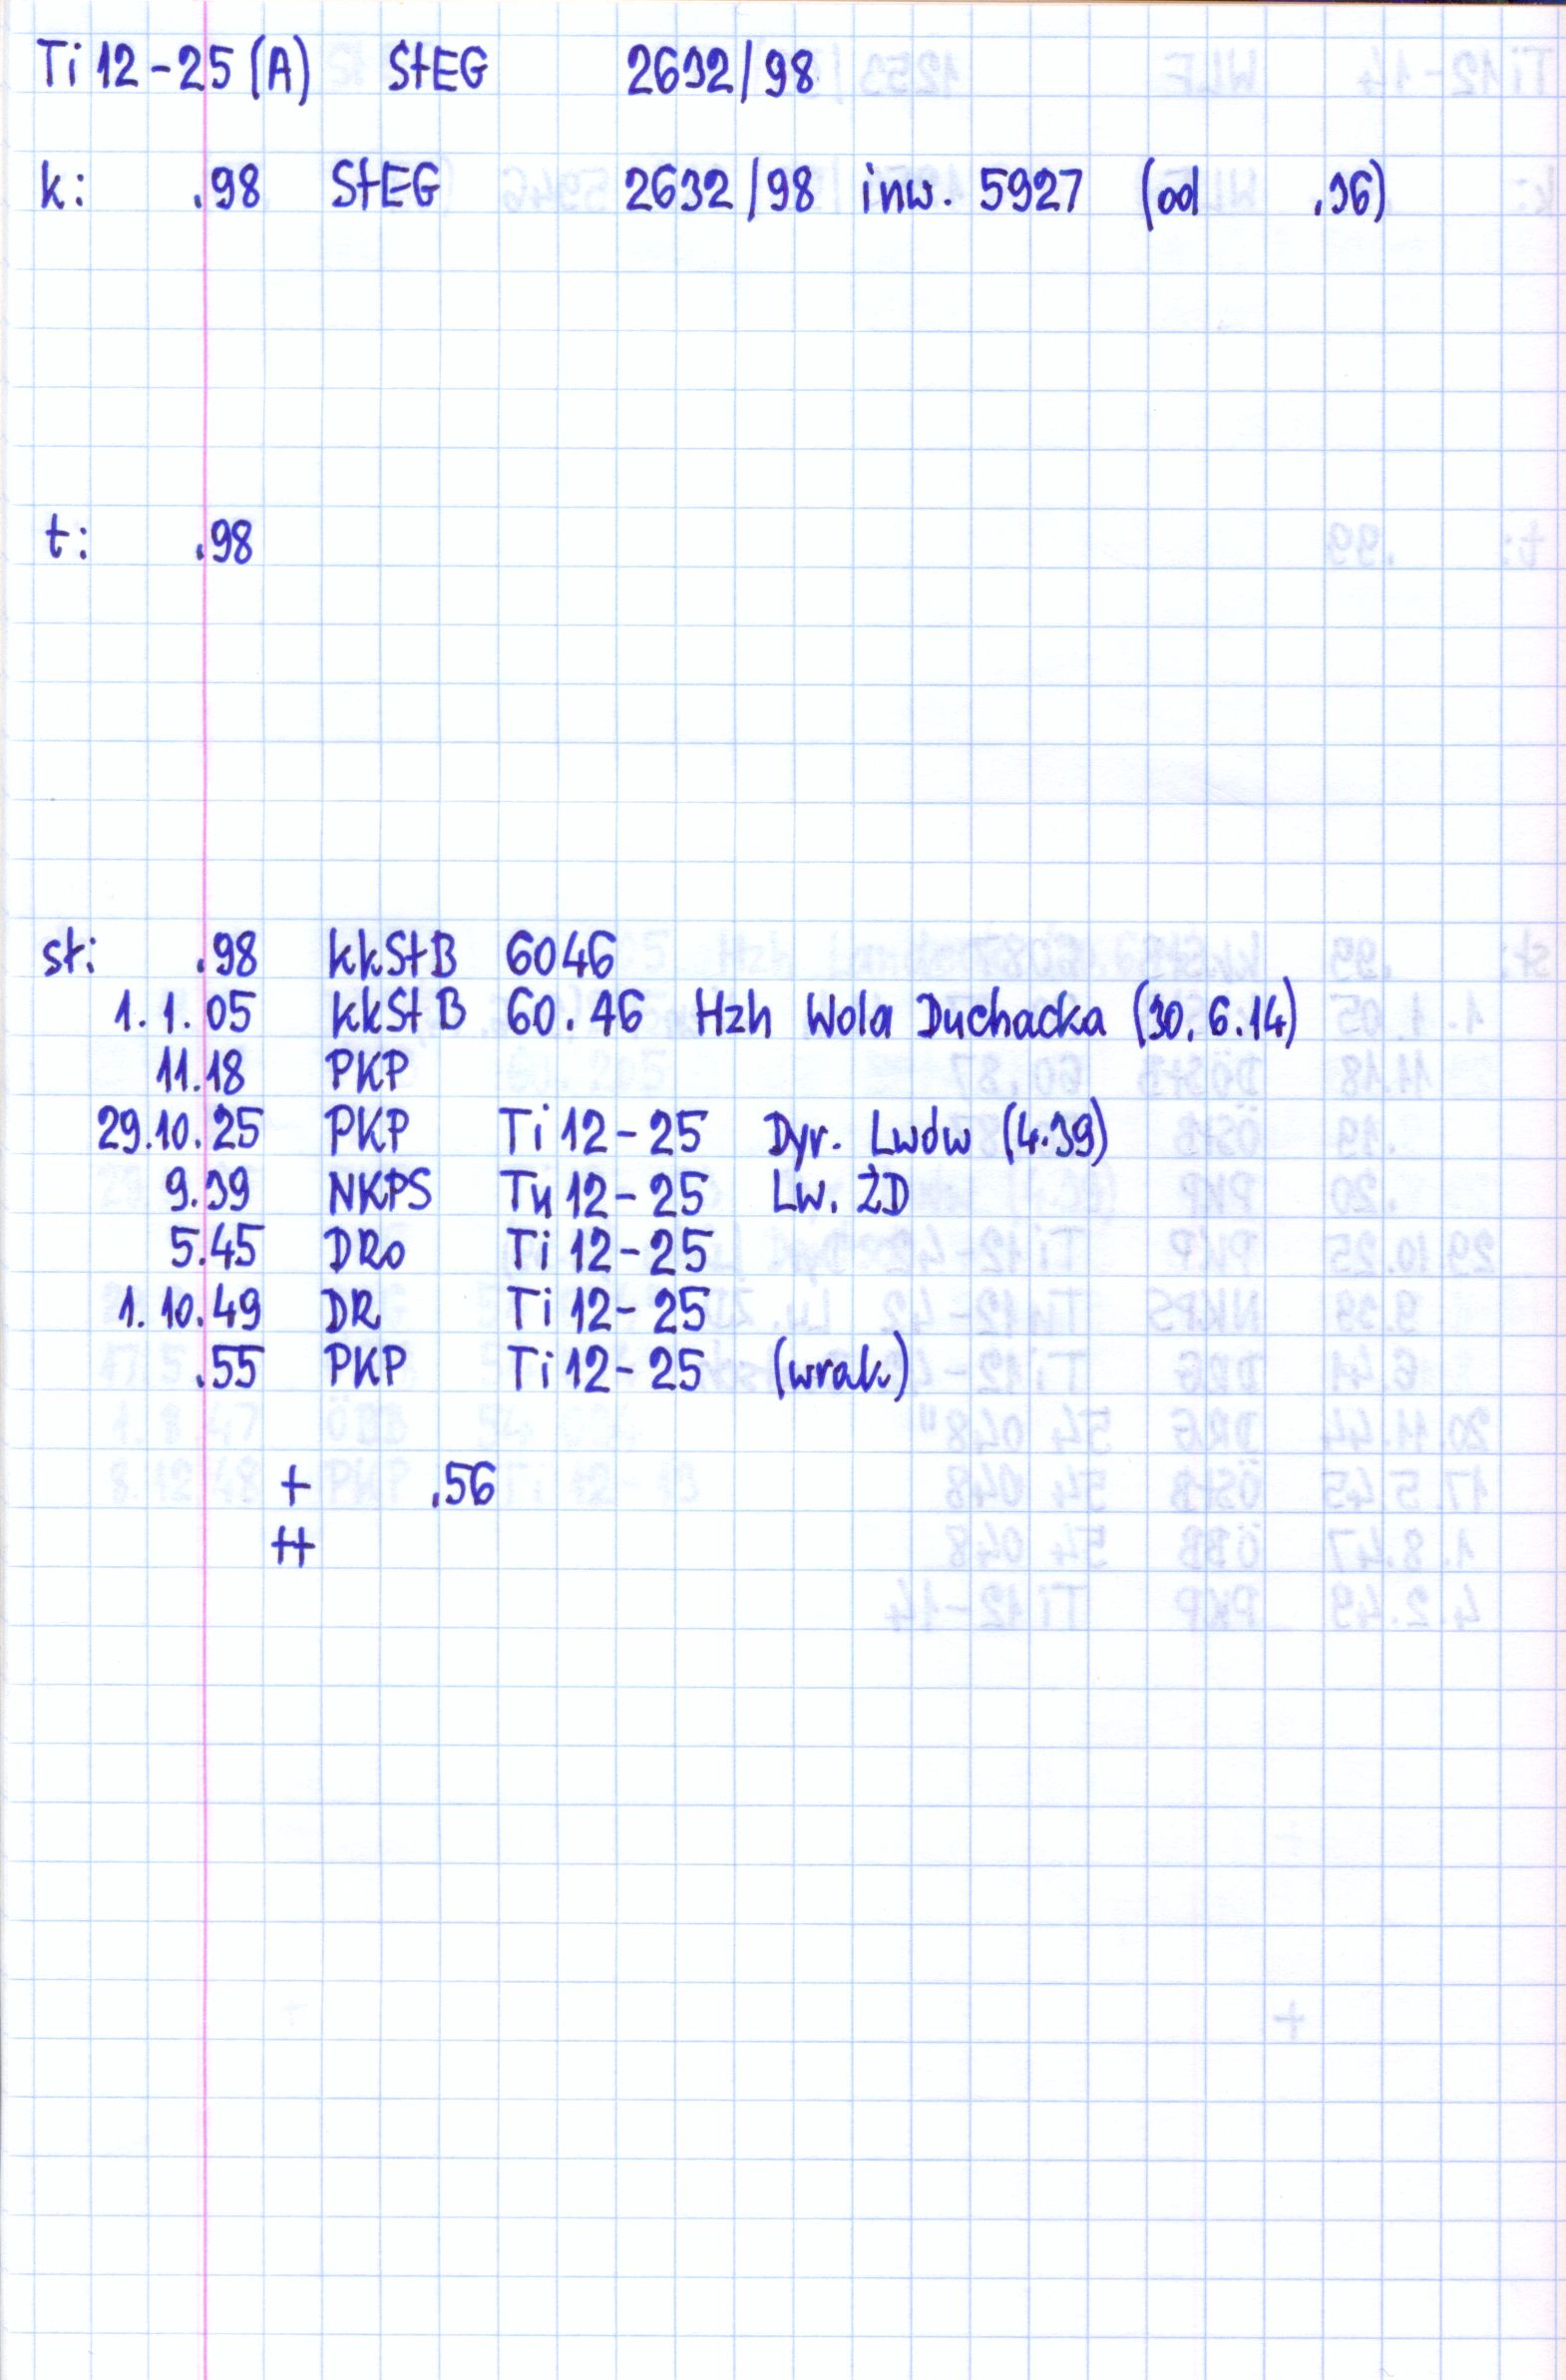 Ti 12-25 (A) StEG 2632/98
k: .98 StEG 2632/98 inw. 5927 (od .36)
t: .98
st: .98 kkStB 6046
1.1.05 kkStB 60.46 Hzh Wola Duchacka (30.6.14)
11.18 PKP
29.10.25 PKP Ti 12-25 Dyr. Lwów (4.39)
9.39 NKPS Tu 12-25 Lw. ŻD
5.45 DRo Ti 12-25
1.10.49 DR Ti 12-25
.55 PKP Ti 12-25 (wrak)
+ .56
++